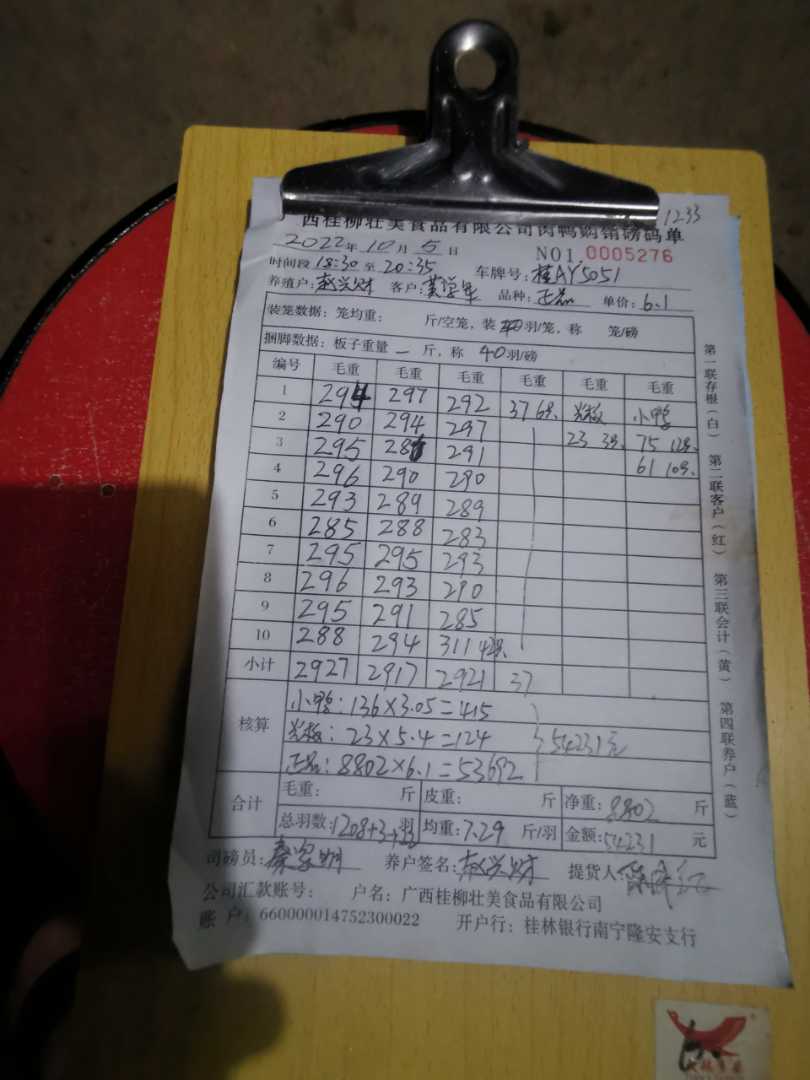 1233
广西桂柳壮美食品有限公司肉鸭购销磅码单
2022年10月5日 NO1 0005276
时间段 18:30 至 20:35 车牌号: 桂AY5051
养殖户: 赵兴财 客户: 黄学军 品种: 正品 单价: 6.1
装笼数据: 笼均重: 斤/空笼, 装 羽/笼, 称 笼/磅
捆脚数据: 板子重量 一 斤, 称 40 羽/磅
编号 毛重 毛重 毛重 毛重 毛重 毛重
1 294 297 292 37 6只 小鸭
2 290 294 297 23 3只 75 12只
3 295 291 61 10只
4 296 290 290
5 293 289 289
6 285 288 283
7 295 295 293
8 296 293 290
9 295 291 285
10 288 294 311 42只
小计 2927 2917 2921 37
核算
小鸭: 136×3.05=415
: 23×5.4=124 54231元
正品: 8802×6.1=53692
合计 毛重: 斤 皮重: 斤 净重: 8802 斤
总羽数: 1208+3+ 羽 均重: 7.29 斤/羽 金额: 54231 元
司磅员: 养户签名: 赵兴财 提货人:
公司汇款账号: 户名: 广西桂柳壮美食品有限公司
账户: 660000014752300022 开户行: 桂林银行南宁隆安支行
第一联存根(白) 第二联客户(红) 第三联会计(黄) 第四联养户(蓝)